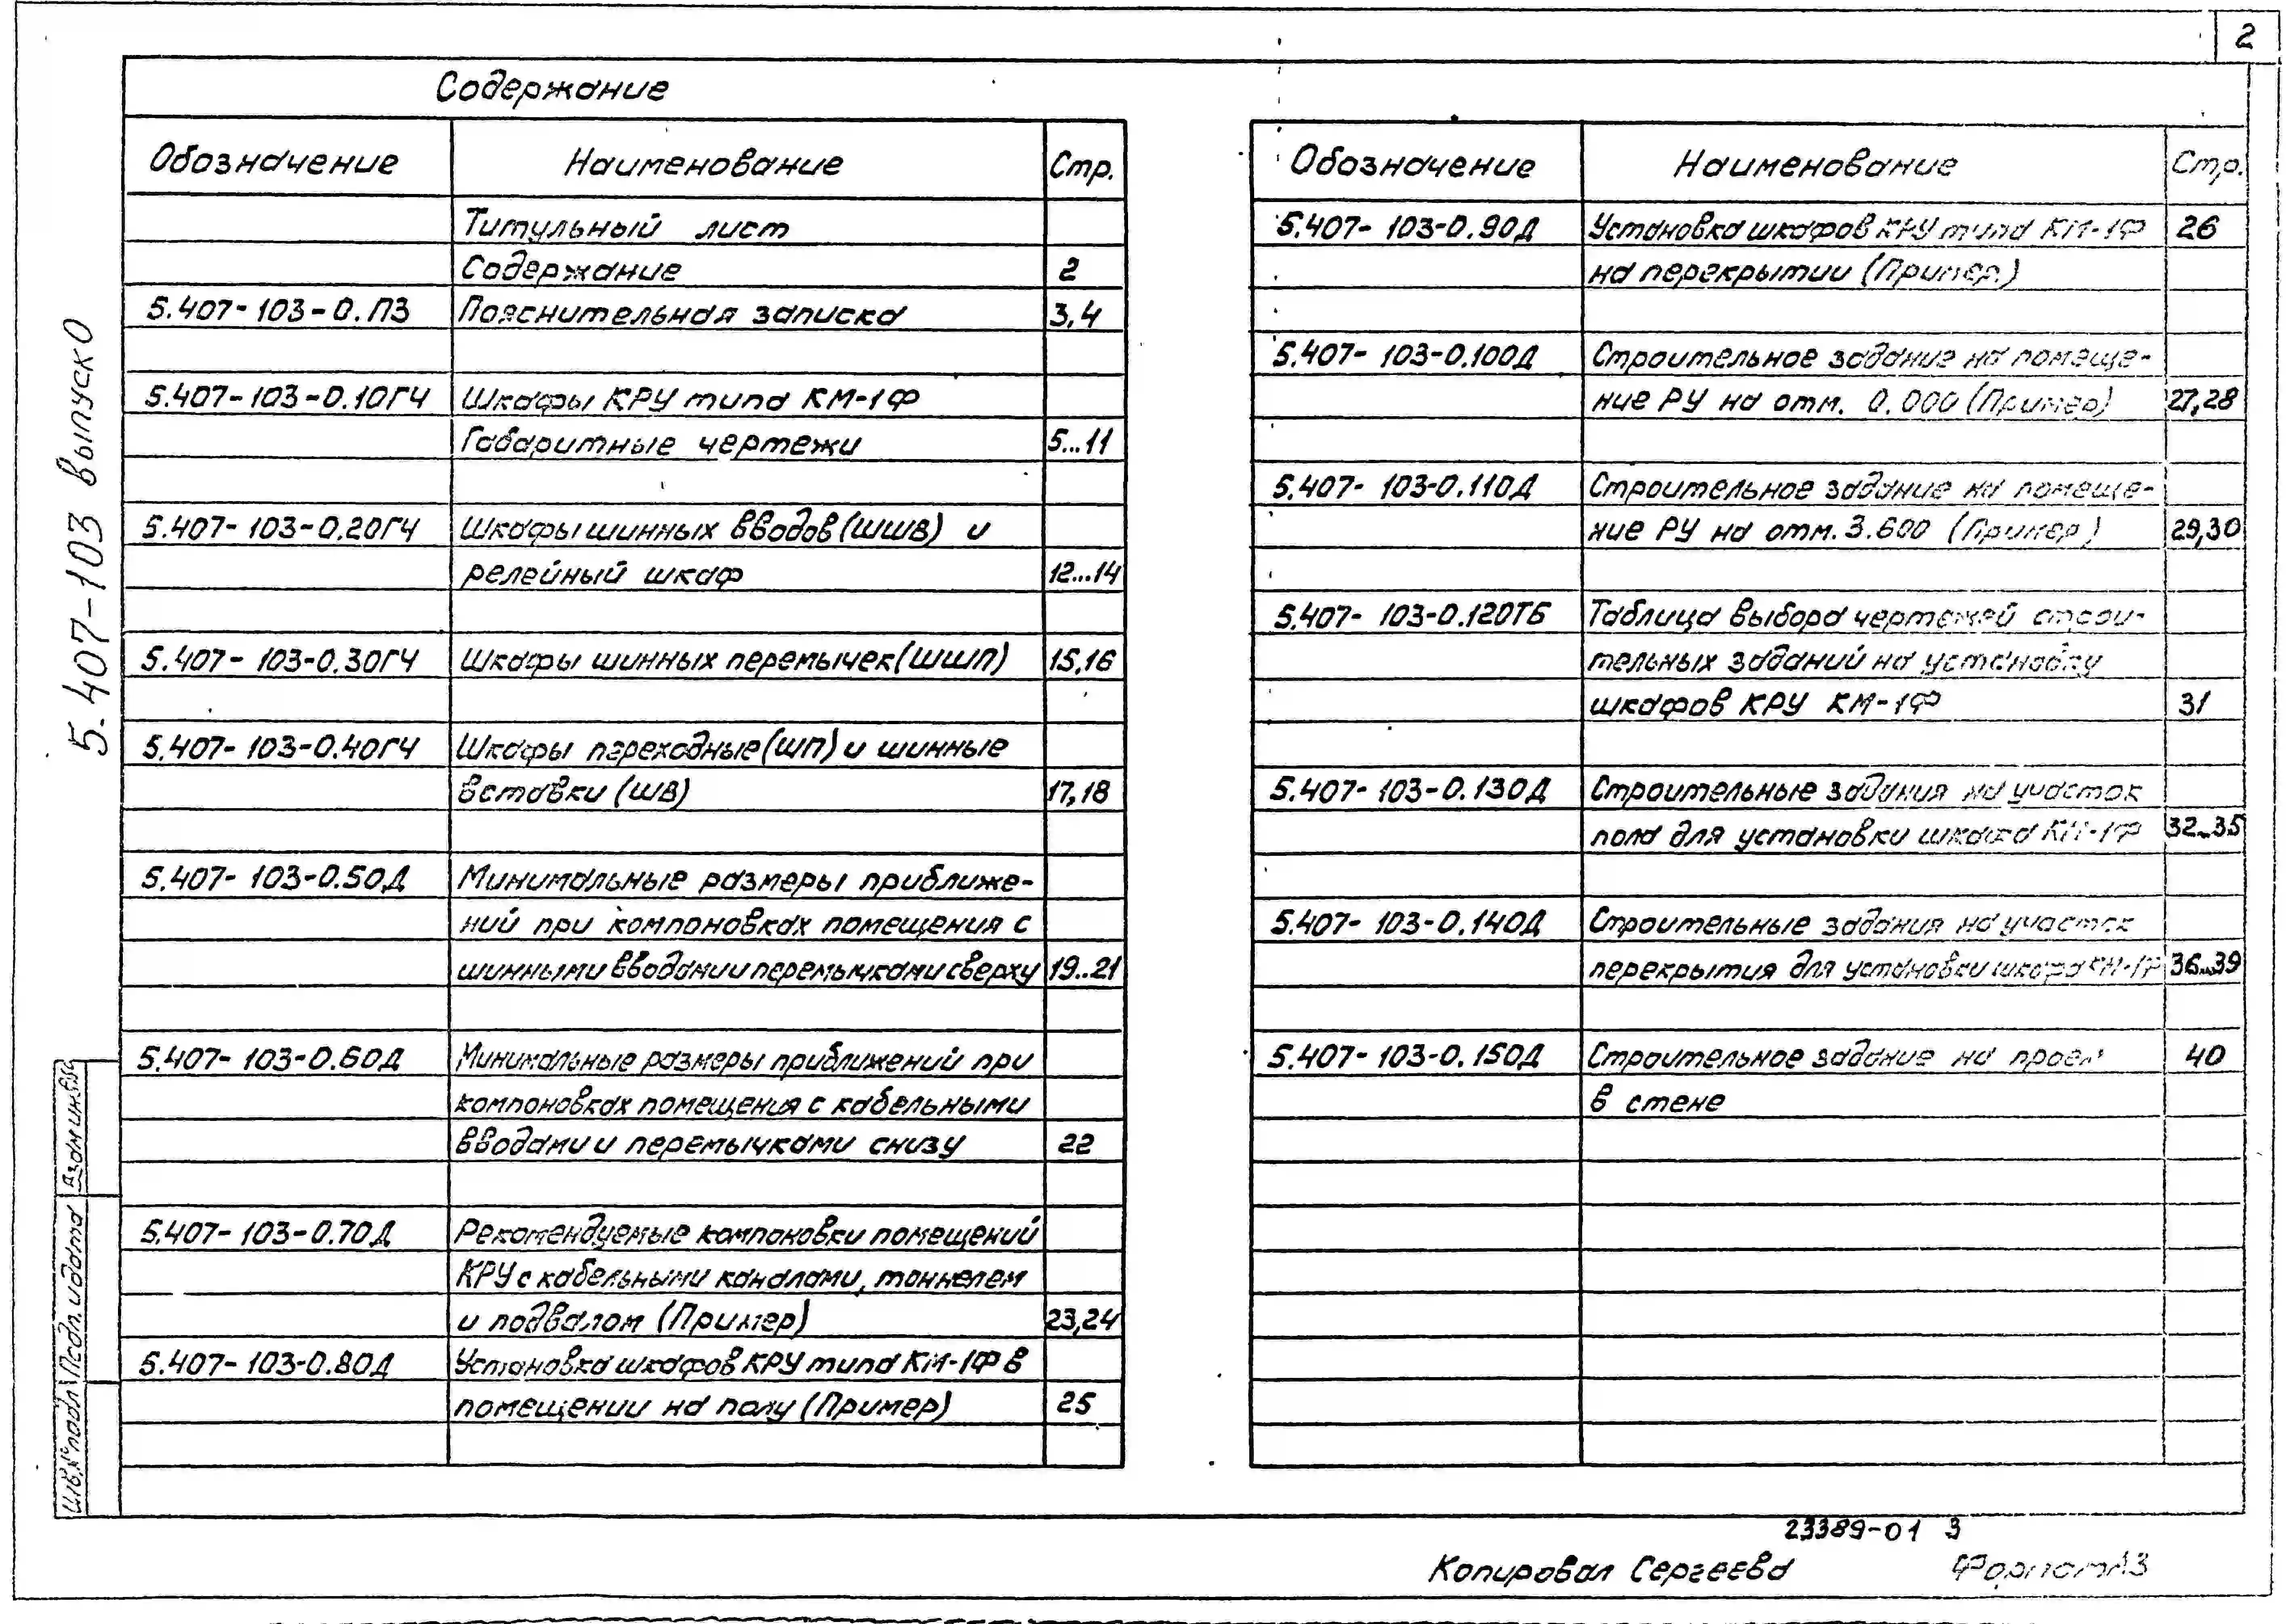 2
Содержание
Обозначение Наименование Стр.
Титульный лист
Содержание 2
5.407-103-0.ПЗ Пояснительная записка 3,4
5.407-103-0.10ГЧ Шкафы КРУ типа КМ-1Ф
Габаритные чертежи 5...11
5.407-103-0.20ГЧ Шкафы шинных вводов (ШШВ) и
релейный шкаф 12...14
5.407-103-0.30ГЧ Шкафы шинных перемычек (ШШП) 15,16
5.407-103-0.40ГЧ Шкафы переходные (ШП) и шинные
вставки (ШВ) 17,18
5.407-103-0.50Д Минимальные размеры приближе-
ний при компоновках помещения с
шинными вводами и перемычками сверху 19..21
5.407-103-0.60Д Минимальные размеры приближений при
компоновках помещения с кабельными
вводами и перемычками снизу 22
5.407-103-0.70Д Рекомендуемые компоновки помещений
КРУ с кабельными каналами, тоннелем
и подвалом (Пример) 23,24
5.407-103-0.80Д Установка шкафов КРУ типа КМ-1Ф в
помещении на полу (Пример) 25
Обозначение Наименование Стр.
5.407-103-0.90Д Установка шкафов КРУ типа КМ-1Ф 26
на перекрытии (Пример)
5.407-103-0.100Д Строительное задание на помеще-
ние РУ на отм. 0.000 (Пример) 27,28
5.407-103-0.110Д Строительное задание на помеще-
ние РУ на отм. 3.600 (Пример) 29,30
5.407-103-0.120ТБ Таблица выбора чертежей строи-
тельных заданий на установку
шкафов КРУ КМ-1Ф 31
5.407-103-0.130Д Строительные задания на участок
пола для установки шкафа КМ-1Ф 32...35
5.407-103-0.140Д Строительные задания на участок
перекрытия для установки шкафа КМ-1Ф 36...39
5.407-103-0.150Д Строительное задание на проем 40
в стене
5.407-103 выпуск 0
Взам инв.№
Подп. и дата
Инв.№ подл
23389-01 3
Копировал Сергеева Формат А3